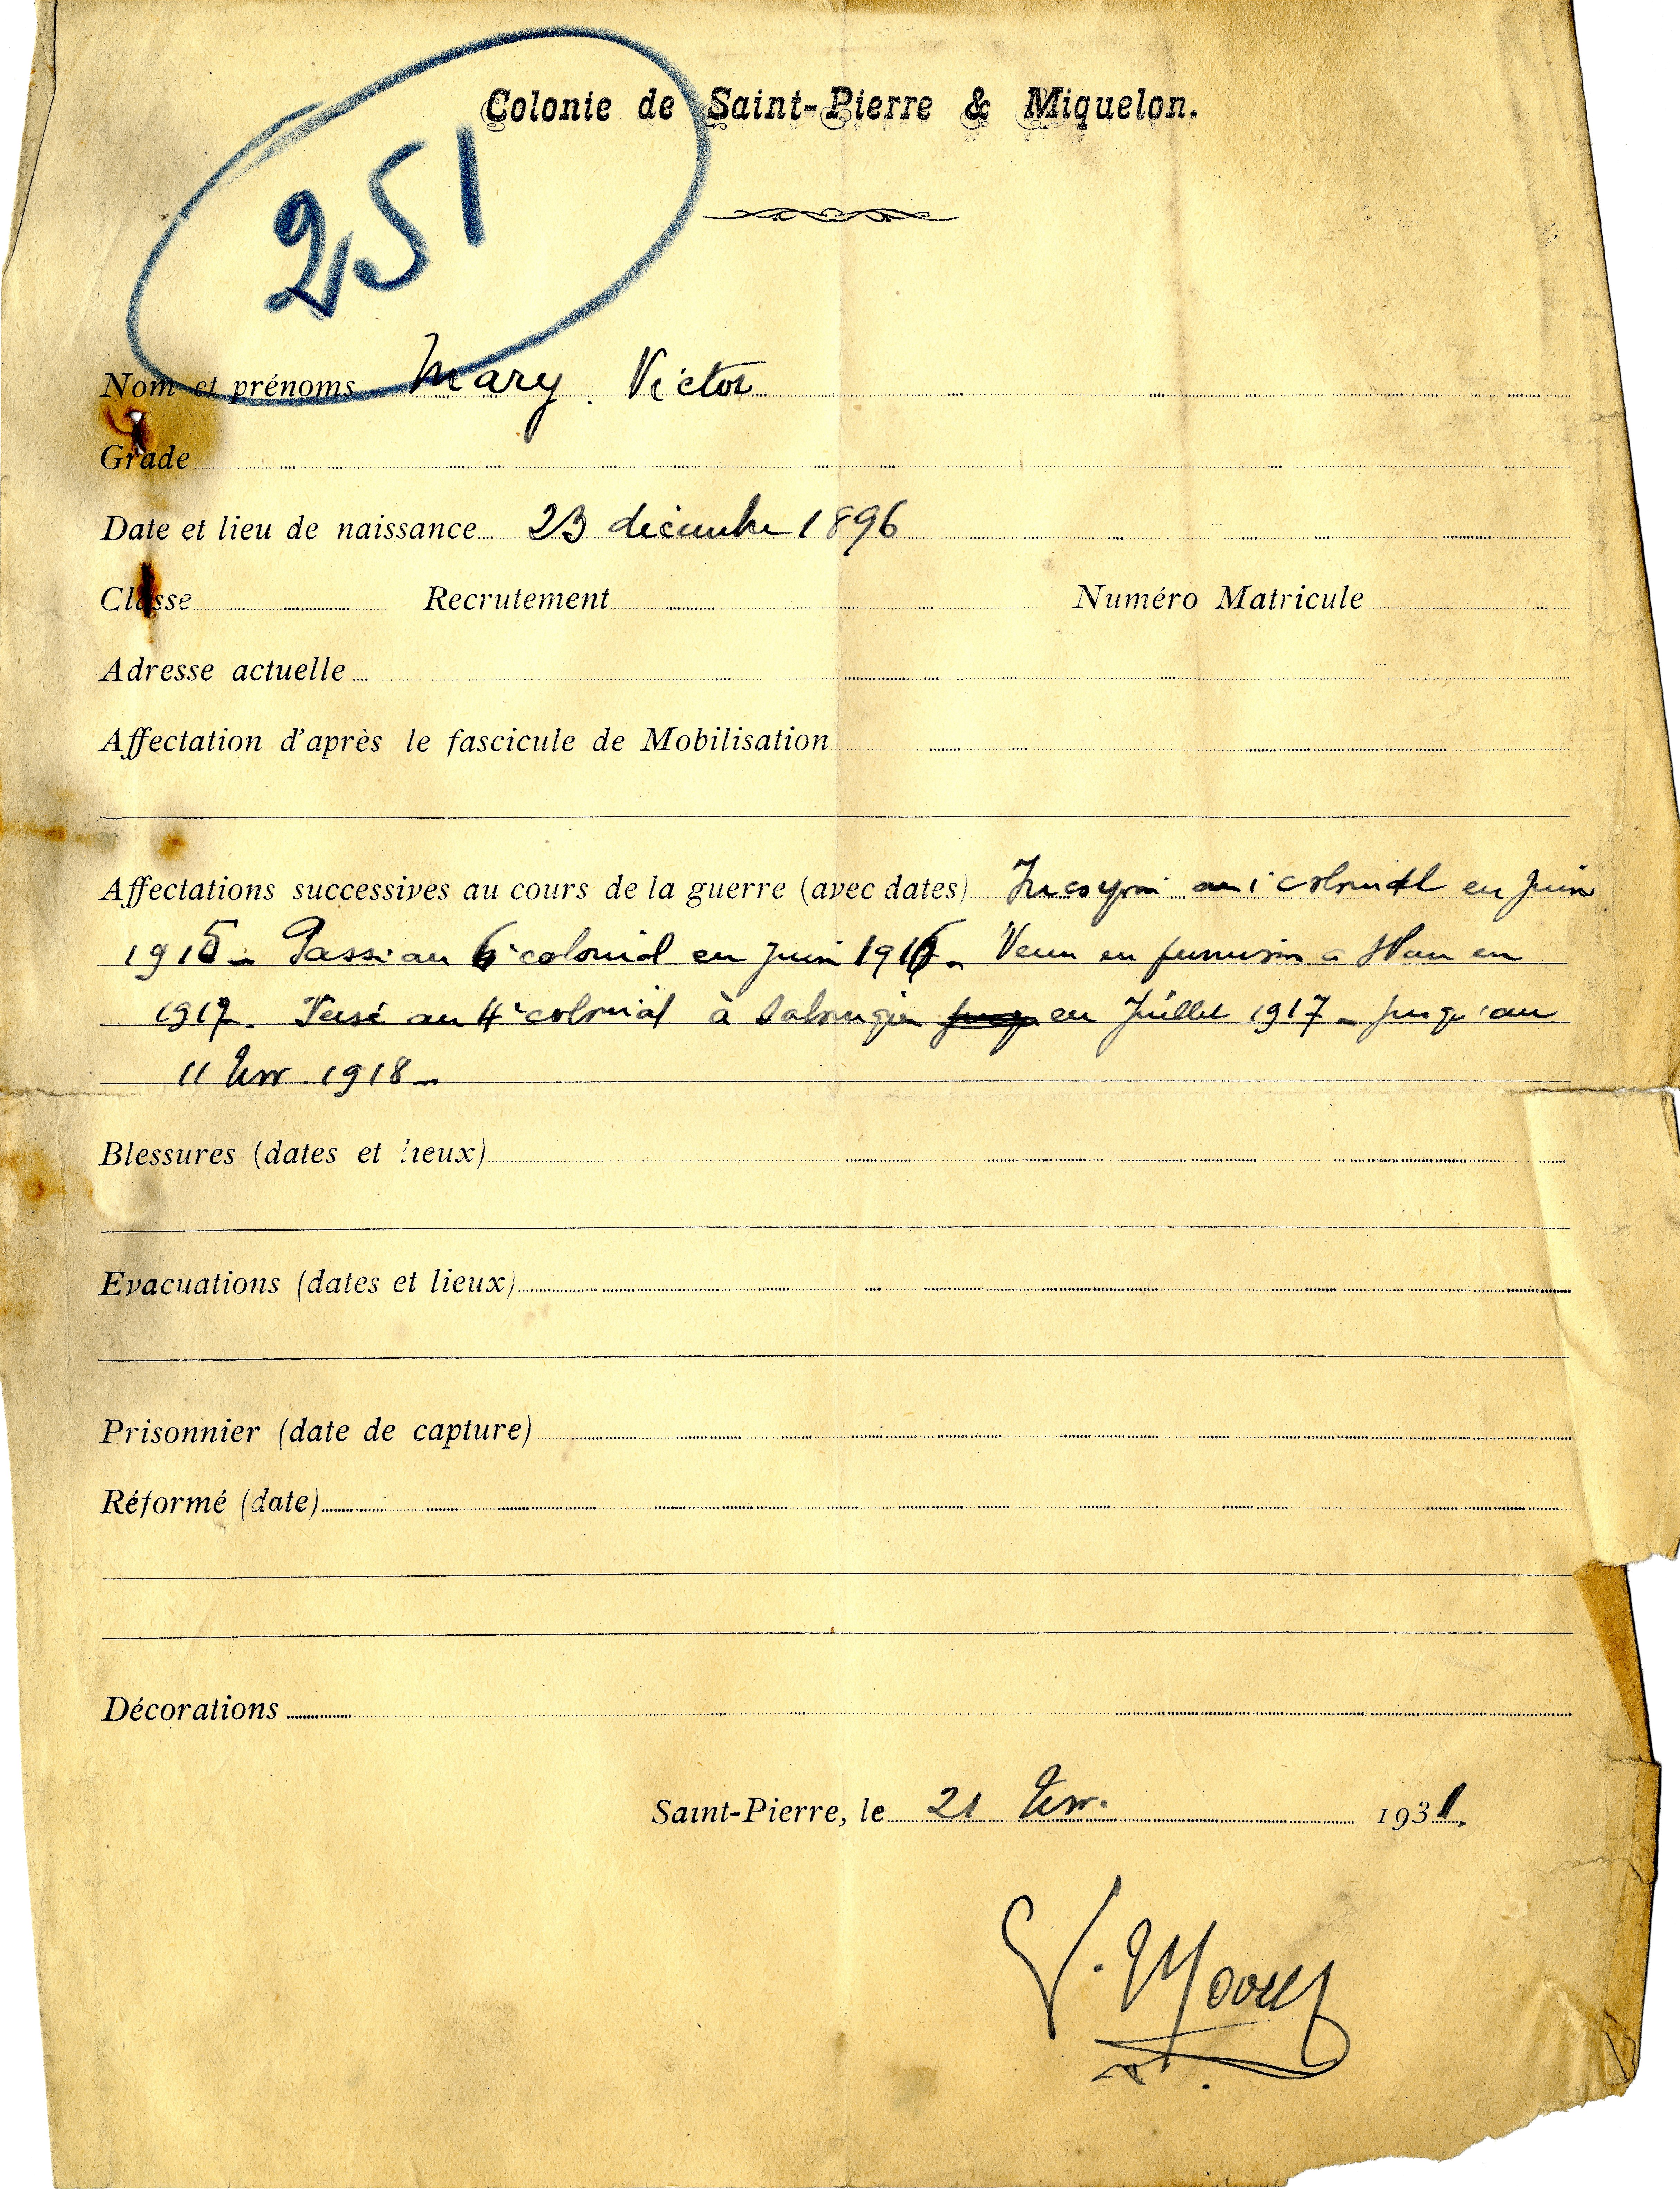 Colonie de Saint-Pierre & Miquelon.
251
Nom et prénoms Mary. Victor
Grade
Date et lieu de naissance 23 décembre 1896
Classe Recrutement Numéro Matricule
Adresse actuelle
Affectation d'après le fascicule de Mobilisation
Affectations successives au cours de la guerre (avec dates) Incorporé au 1e colonial en Juin
1915 - Passé au 6e colonial en Juin 1916 - Venu en permission a en
1917 - Versé au 4e colonial à en Juillet 1917 - jusqu'au
11 Nov 1918 -
Blessures (dates et lieux)
Evacuations (dates et lieux)
Prisonnier (date de capture)
Réformé (date)
Décorations
Saint-Pierre, le 21 Nov. 1931.
V. Mary